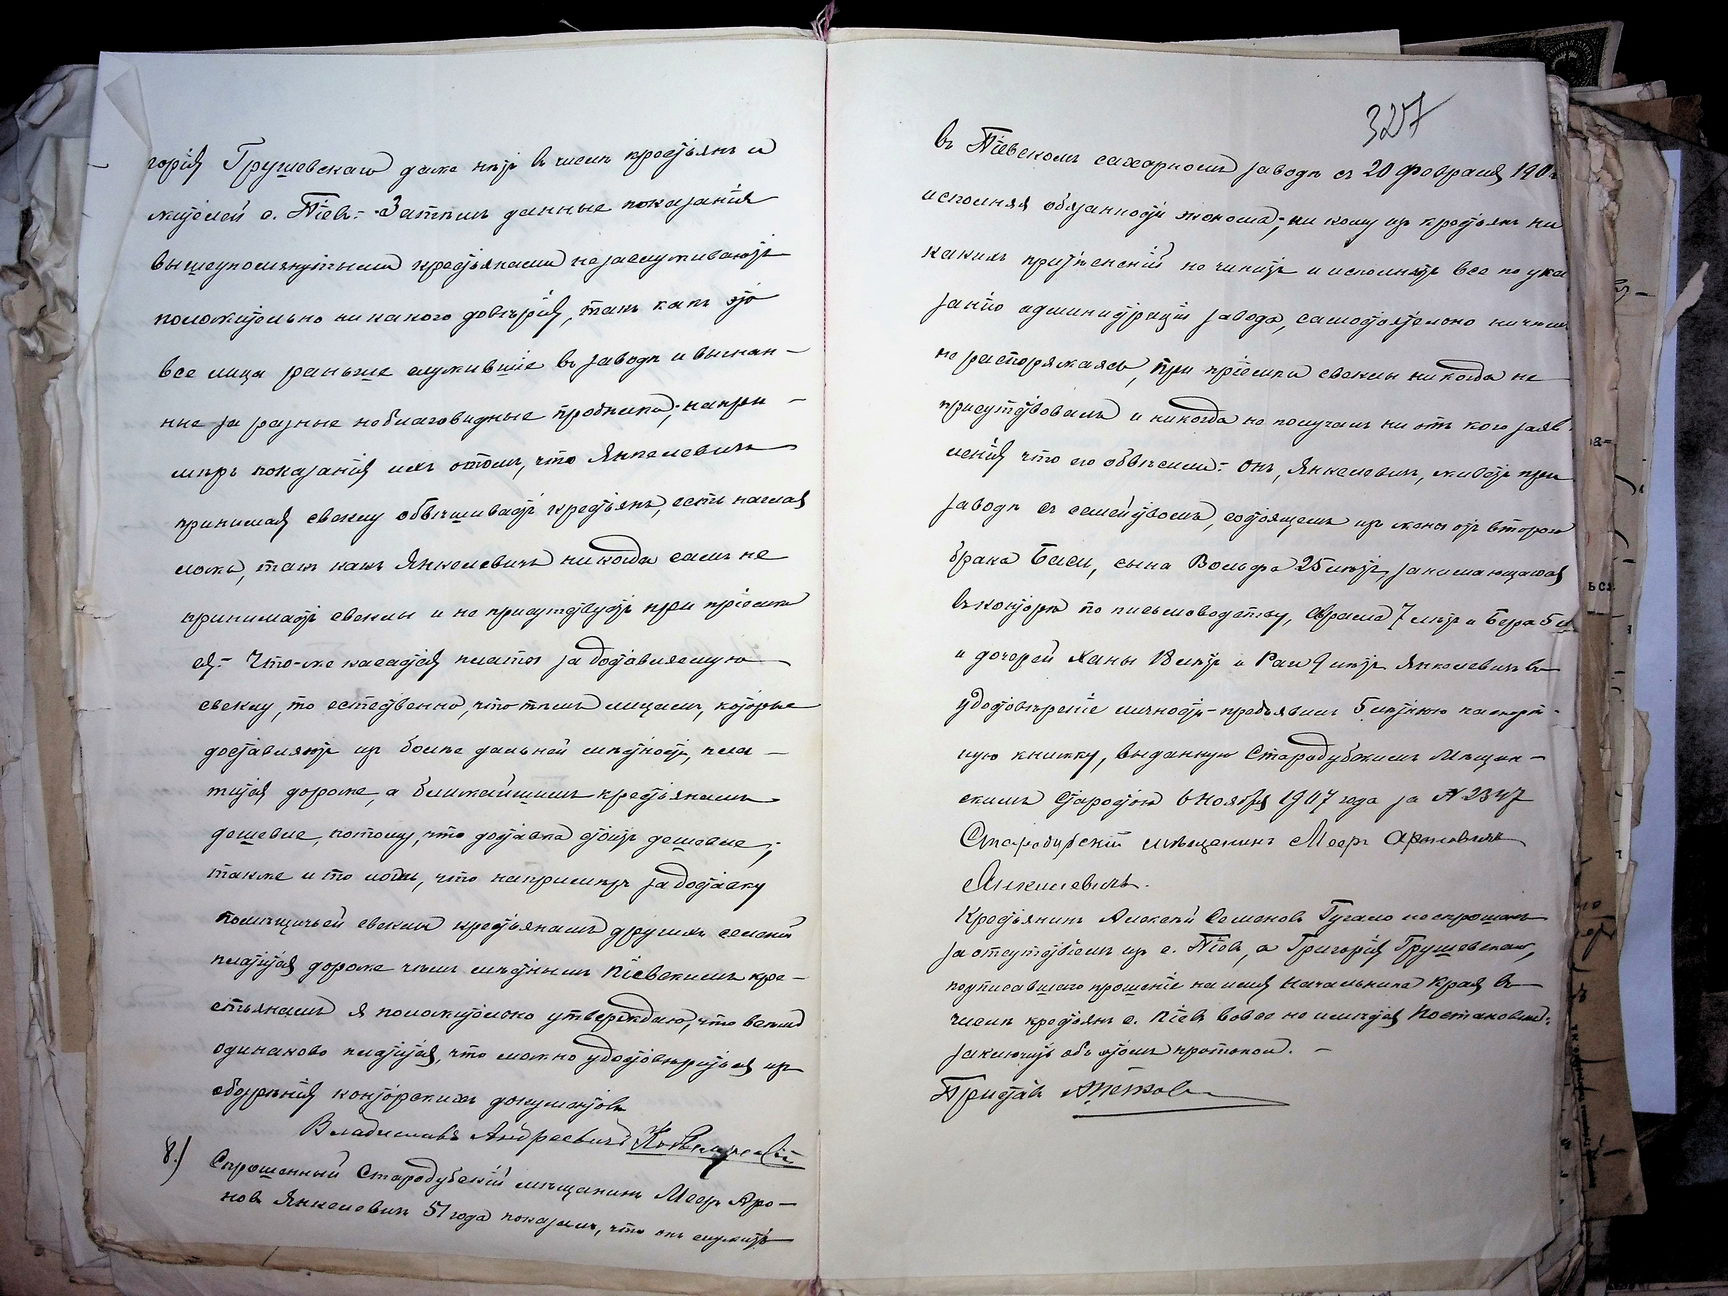 горія Грушевскаго даже нѣтъ въ числѣ крестьянъ и
жителей с. Піевъ.- Затѣмъ данные показанія
вышеупомянутыми крестьянами не заслуживаютъ
положительно никакого довѣрія, такъ какъ это
все лица раньше служившіе въ заводѣ и выгнан-
ные за разные неблаговидные проступки; напри-
мѣръ показанія ихъ о томъ, что Янкелевичъ
принимая свеклу обвѣшиваетъ крестьянъ, есть наглая
ложь, такъ какъ Янкелевичъ никогда самъ не
принимаетъ свеклы и не присутствуетъ при пріемкѣ
ея.- Что-же касается платы за доставляемую
свеклу, то естественно, что тѣмъ лицамъ, которые
доставляютъ изъ болѣе дальней мѣстности, пла-
тится дороже, а ближайшимъ крестьянамъ
дешевле, потому, что доставка стоитъ дешевле;
также и то ложь, что напримѣръ за доставку
помѣщичьей свеклы крестьянамъ другихъ селеній
платится дороже чѣмъ мѣстнымъ Піевскимъ кре-
стьянамъ я положительно утверждаю, что всѣмъ
одинаково платится, что можно удостовѣриться изъ
обозрѣнія конторскихъ документовъ
Владиславъ Андреевичъ
8.) Спрошенный Стародубскій мѣщанинъ Мееръ Аро-
новъ Янкелевичъ 51 года показалъ, что онъ служитъ
327
въ Піевскомъ сахарномъ заводѣ съ 20 февраля
исполняя обязанности эконома; ни кому изъ крестьянъ ни
какихъ притѣсненій не чинитъ и исполняетъ все по ука
занію администраціи завода, самостоятельно ничѣмъ
не распоряжаясь, при пріемкѣ свеклы никогда не
присутствовалъ и никогда не получалъ ни отъ кого заяв
ленія что его обвѣсили.- Онъ, Янкелевичъ, живетъ при
заводѣ съ семействомъ, состоящемъ изъ жены отъ второго
брака Баси, сына Вольфа 25 лѣтъ, занимающагося
въ конторѣ по письмоводству, Абрама 7 лѣтъ и Бера 5 л
и дочерей Ханы 18 лѣтъ и Раи 9 лѣтъ Янкелевичъ въ
удостовѣреніе личности предъявилъ 5 лѣтнюю паспорт-
ную книжку, выданную Стародубскимъ Мѣщан-
скимъ старостою 6 Ноября 1907 года за № 2347
Стародубскій мѣщанинъ Мееръ Ароновичъ
Янкелевичъ.
Крестьянинъ Алексѣй Семеновъ Гугало не спрошенъ
за отсутствіемъ изъ с. Піевъ, а Григорія Грушевскаго,
подписавшаго прошеніе на имя Начальника Края въ
числѣ крестьянъ с. Піевъ вовсе не имѣется Постановилъ:
заключить объ этомъ протоколъ. -
Приставъ